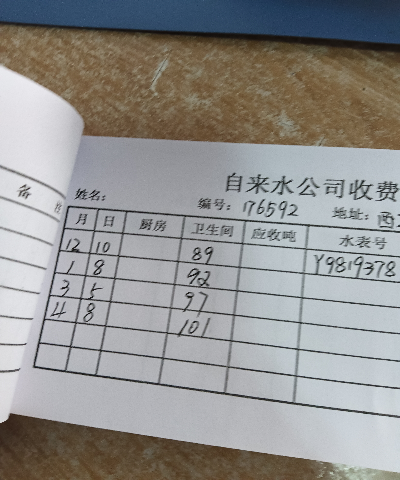 备
自来水公司收费
姓名: 编号: 176592 地址: 西
月 日 厨房 卫生间 应收吨 水表号
12 10 89 Y9819378
1 8 92
3 5 97
4 8 101